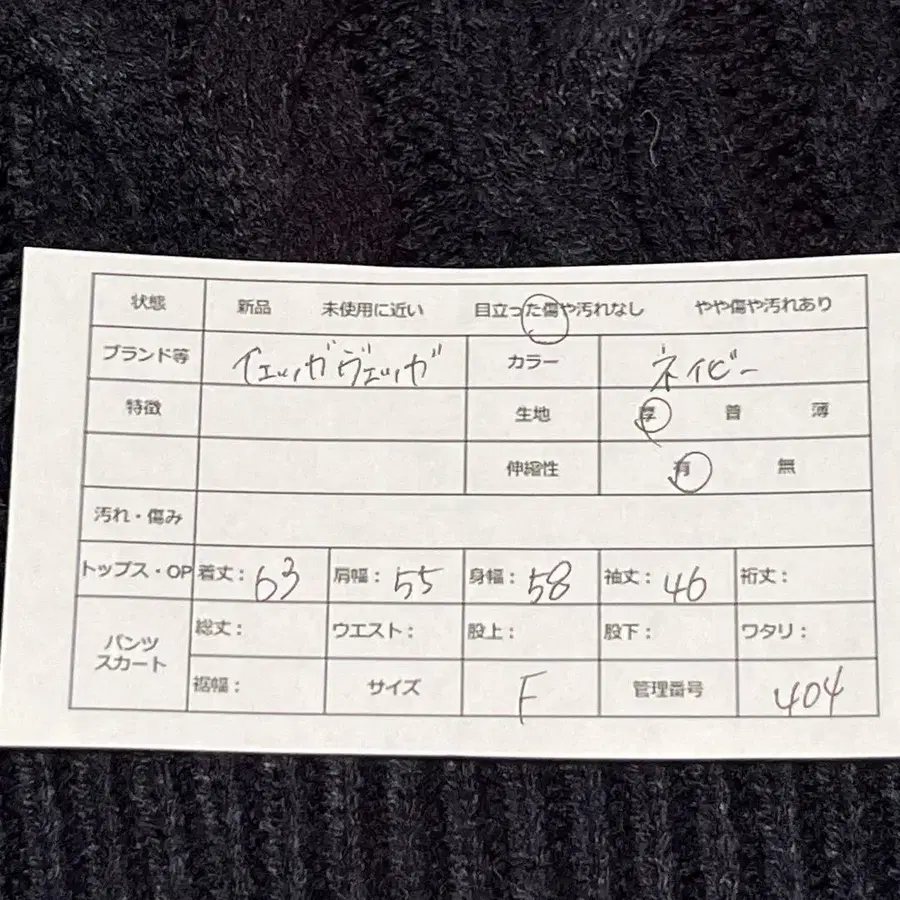 状態 新品 未使用に近い 目立った傷や汚れなし やや傷や汚れあり
ブランド等 イェッガヴェッガ カラー ネイビー
特徴 生地 厚 普 薄
伸縮性 有 無
汚れ・傷み
トップス・OP 着丈: 63 肩幅: 55 身幅: 58 袖丈: 46 裄丈:
パンツ スカート 総丈: ウエスト: 股上: 股下: ワタリ:
裾幅: サイズ F 管理番号 404